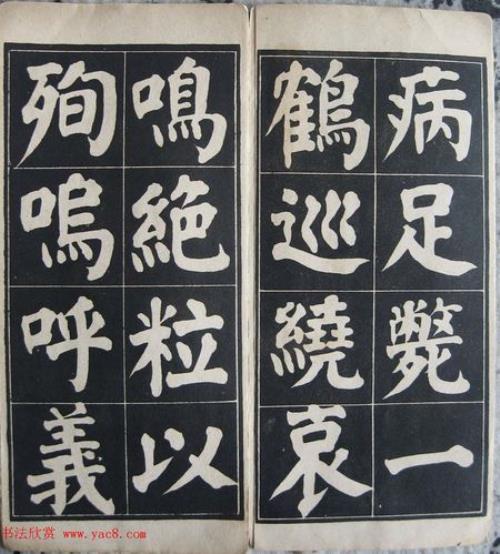 病足斃一
鶴巡繞哀
鳴絶粒以
殉嗚呼義
书法欣赏 www.yac8.com